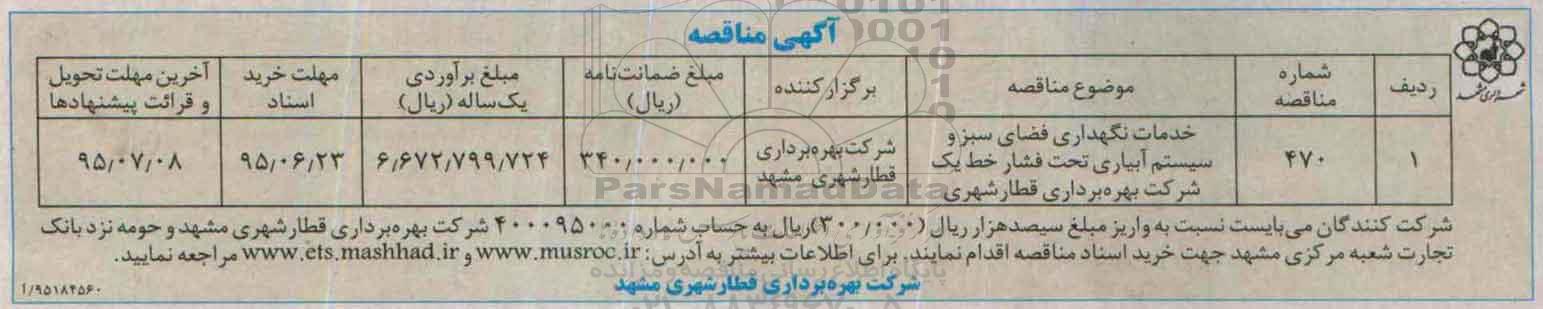 آگهی مناقصه
شهرداری مشهد
ردیف
شماره
مناقصه
موضوع مناقصه
برگزار کننده
مبلغ ضمانت‌نامه
(ریال)
مبلغ برآوردی
یک‌ساله (ریال)
مهلت خرید
اسناد
آخرین مهلت تحویل
و قرائت پیشنهادها
۱
۴۷۰
خدمات نگهداری فضای سبز و
سیستم آبیاری تحت فشار خط یک
شرکت بهره‌برداری قطارشهری
شرکت بهره‌برداری
قطارشهری مشهد
۳۴۰٫۰۰۰٫۰۰۰
۶٫۶۷۲٫۷۹۹٫۷۲۴
۹۵٫۰۶٫۲۳
۹۵٫۰۷٫۰۸
شرکت کنندگان می‌بایست نسبت به واریز مبلغ سیصدهزار ریال (۳۰۰٫۰۰۰)ریال به حساب شماره ۴۰۰۰۹۵۰۰۰ شرکت بهره‌برداری قطارشهری مشهد و حومه نزد بانک
تجارت شعبه مرکزی مشهد جهت خرید اسناد مناقصه اقدام نمایند. برای اطلاعات بیشتر به آدرس: www.musroc.ir و www.ets.mashhad.ir مراجعه نمایید.
شرکت بهره‌برداری قطارشهری مشهد
۱/۹۵۱۸۴۵۶۰
ParsNamadData
پایگاه اطلاع رسانی مناقصه و مزایده